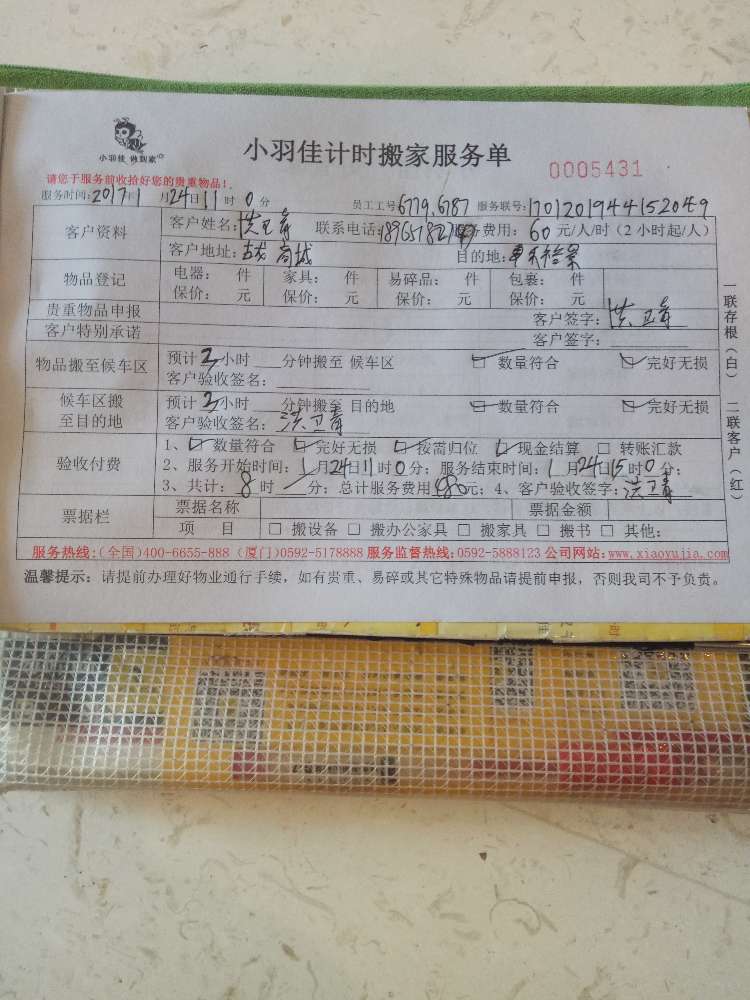 小羽佳 做到家
小羽佳计时搬家服务单
0005431
请您于服务前收拾好您的贵重物品！
服务时间：2017年1月24日11时0分 员工工号6779.6787 服务联号：1701201944152049
客户资料
客户姓名：洪卫青 联系电话： 费用：60元/人/时（2小时起/人）
客户地址： 商城 目的地：
物品登记
电器： 件 家具： 件 易碎品： 件 包裹： 件
保价： 元 保价： 元 保价： 元 保价： 元
贵重物品申报 客户签字：洪卫青
客户特别承诺 客户签字：
物品搬至候车区
预计2小时 分钟搬至 候车区 ☑数量符合 ☑完好无损
客户验收签名：
候车区搬
至目的地
预计2小时 分钟搬至 目的地 ☑数量符合 ☑完好无损
客户验收签名：洪卫青
验收付费
1、☑数量符合 ☑完好无损 ☑按需归位 ☑现金结算 □转账汇款
2、服务开始时间：1月24日11时0分；服务结束时间：1月24日15时0分；
3、共计：8时 分；总计服务费用480元；4、客户验收签字：洪卫青
票据栏
票据名称 票据金额
项 目 □搬设备 □搬办公家具 □搬家具 □搬书 □其他：
服务热线：（全国）400-6655-888（厦门）0592-5178888 服务监督热线：0592-5888123 公司网站：www.xiaoyujia.com
温馨提示：请提前办理好物业通行手续，如有贵重、易碎或其它特殊物品请提前申报，否则我司不予负责。
一联存根（白）
二联客户（红）